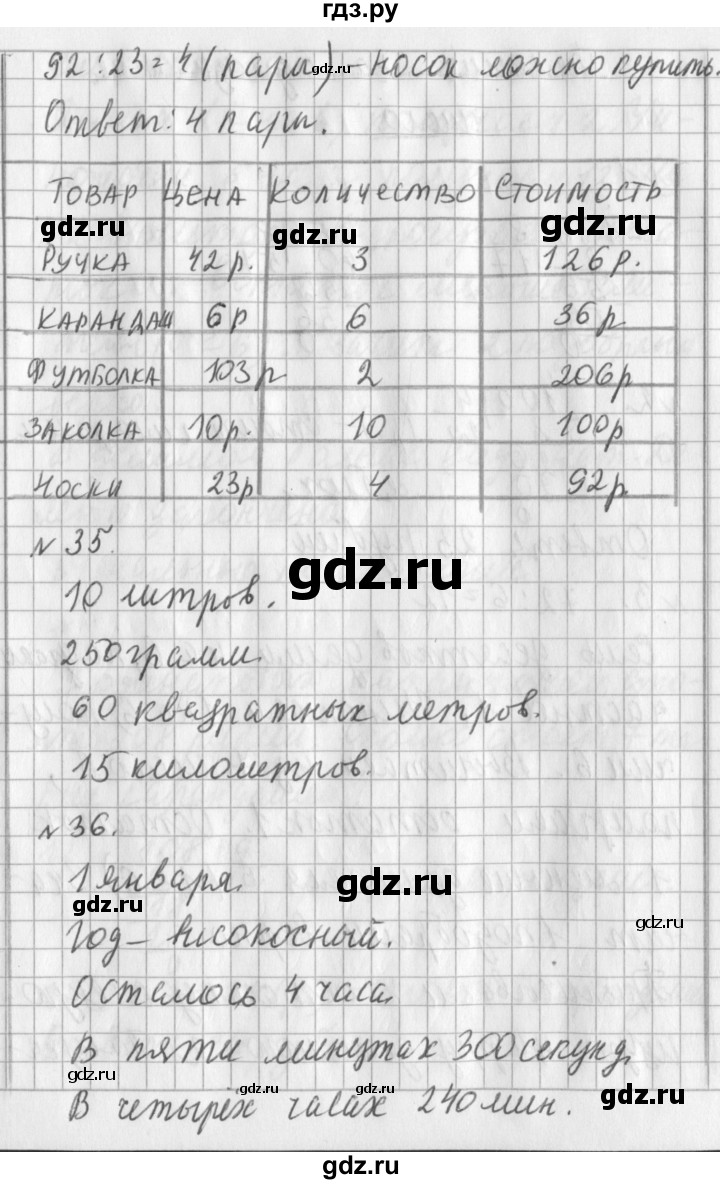 гдз.ру
92:23=4(пары)-носок можно купить.
Ответ: 4 пары.
Товар Цена Количество Стоимость
gdz.ru gdz.ru gdz.ru
Ручка 42р. 3 126р.
Карандаш 6р 6 36р
gdz.ru gdz.ru gdz.ru
Футболка 103р 2 206р
Заколка 10р. 10 100р
gdz.ru gdz.ru gdz.ru
Носки 23р 4 92р
№35.
gdz.ru
10 литров.
250 грамм.
gdz.ru gdz.ru gdz.ru
60 квадратных метров.
15 километров.
gdz.ru gdz.ru
№36.
1 января.
gdz.ru
gdz.ru gdz.ru
Год- високосный.
Осталось 4 часа.
В пяти минутах 300 секунд.
gdz.ru gdz.ru gdz.ru
В четырёх часах 240 мин.
gdz.ru